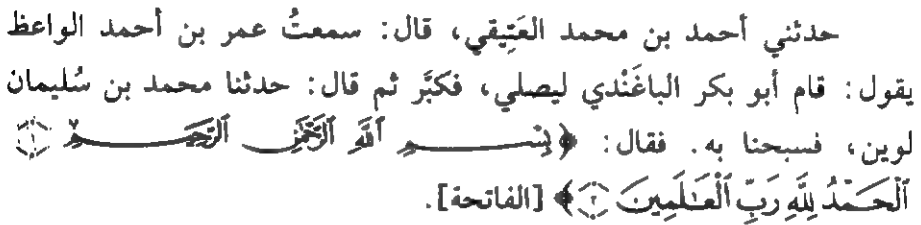 حدثني أحمد بن محمد العَتِيقي، قال: سمعتُ عمر بن أحمد الواعظ
يقول: قام أبو بكر الباغَنْدي ليصلي، فكبَّر ثم قال: حدثنا محمد بن سُليمان
لوين، فسبحنا به. فقال: ﴿بِسْمِ ٱللَّهِ ٱلرَّحْمَٰنِ ٱلرَّحِيمِ ١
ٱلْحَمْدُ لِلَّهِ رَبِّ ٱلْعَٰلَمِينَ ٢﴾ [الفاتحة].